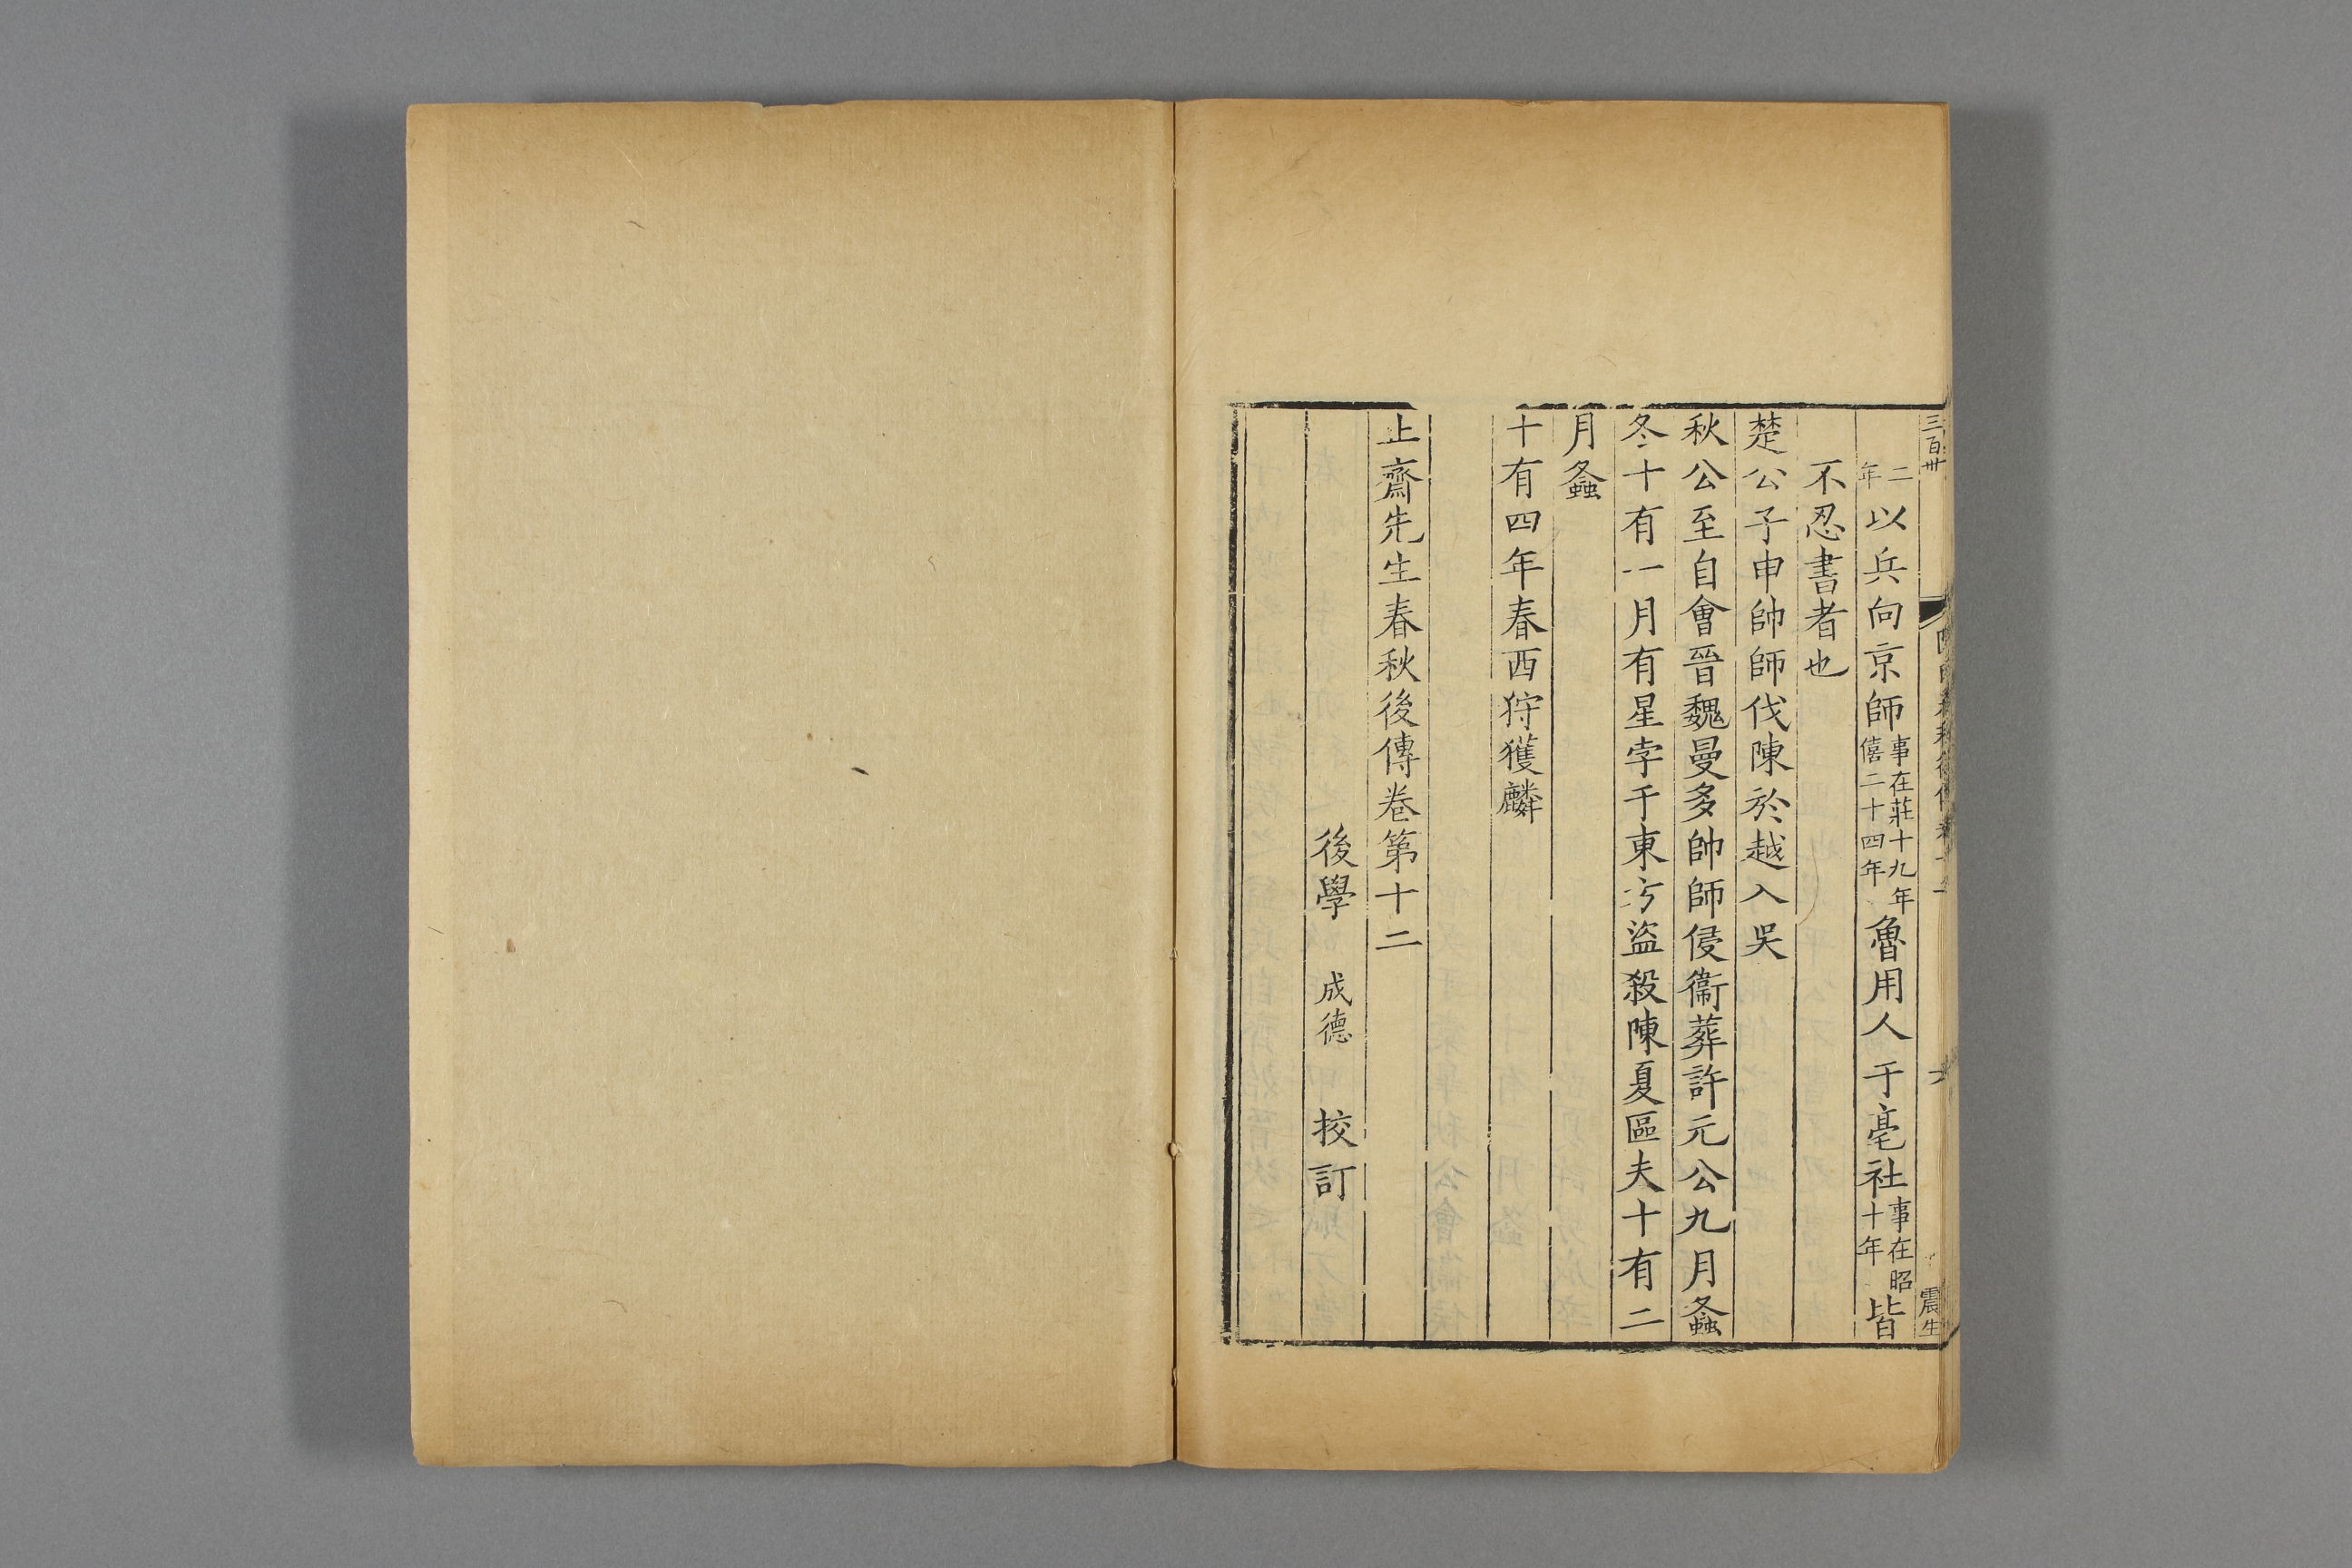 三百卅
二年以兵向京師事在莊十九年僖二十四年魯用人于亳社事在昭十年皆
不忍書者也
楚公子申帥師伐陳於越入吳
秋公至自會晉魏曼多帥師侵衞葬許元公九月螽
冬十有一月有星孛于東方盜殺陳夏區夫十有二
月螽
十有四年春西狩獲麟
止齋先生春秋後傳卷第十二
後學 成德 挍訂
震生